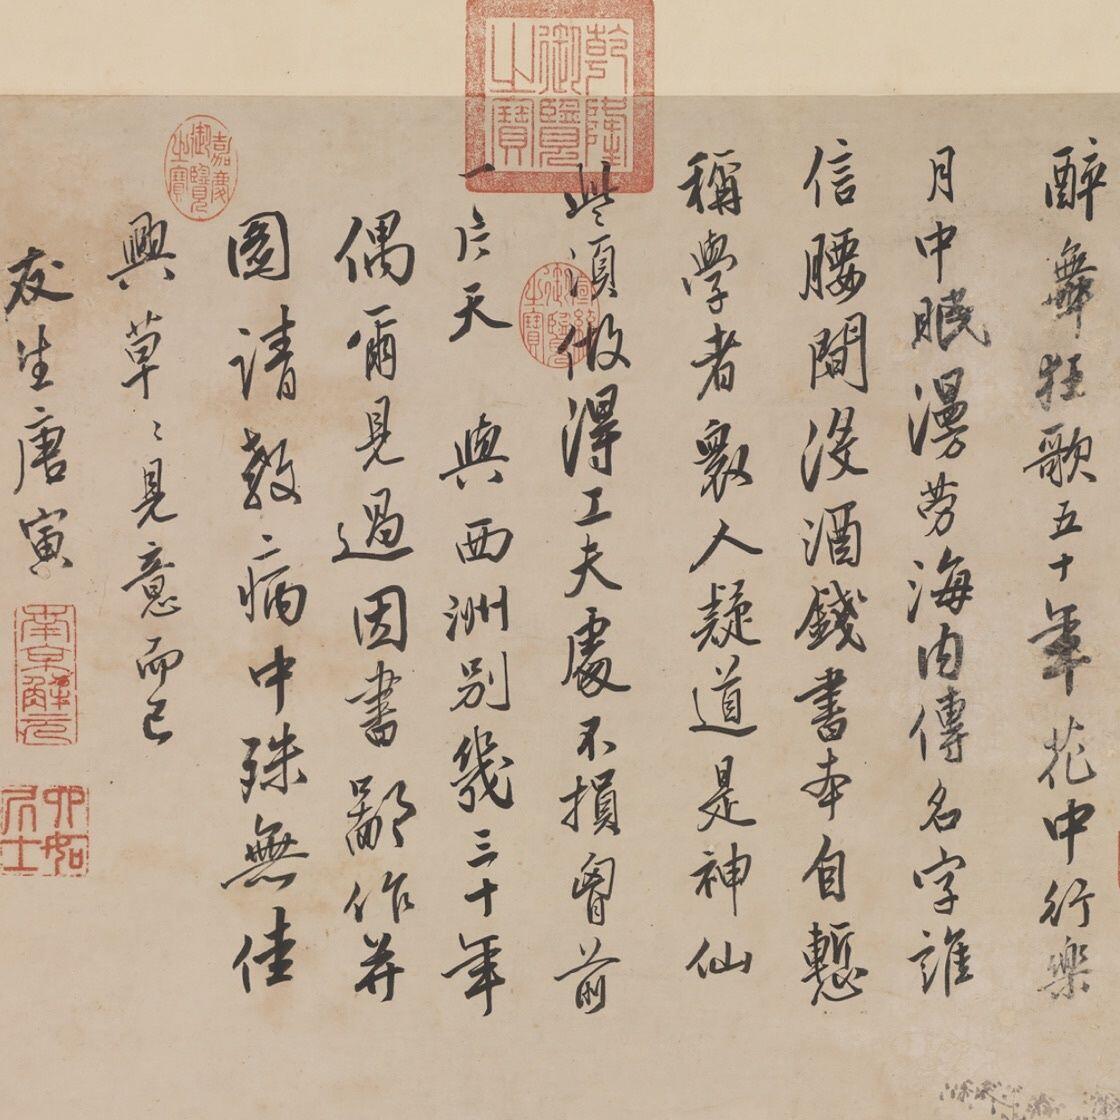 醉舞狂歌五十年花中行樂
月中眠漫勞海內傳名字誰
信腰間沒酒錢書本自慙
稱學者眾人疑道是神仙
些須做得工夫處不損胷前
一片天 與西洲別幾三十年
偶爾見過因書鄙作并
圖請教病中殊無佳
興草〻見意而已
友生唐寅
乾隆御覽之寶
嘉慶御覽之寶
宣統御覽之寶
南京解元
六如居士